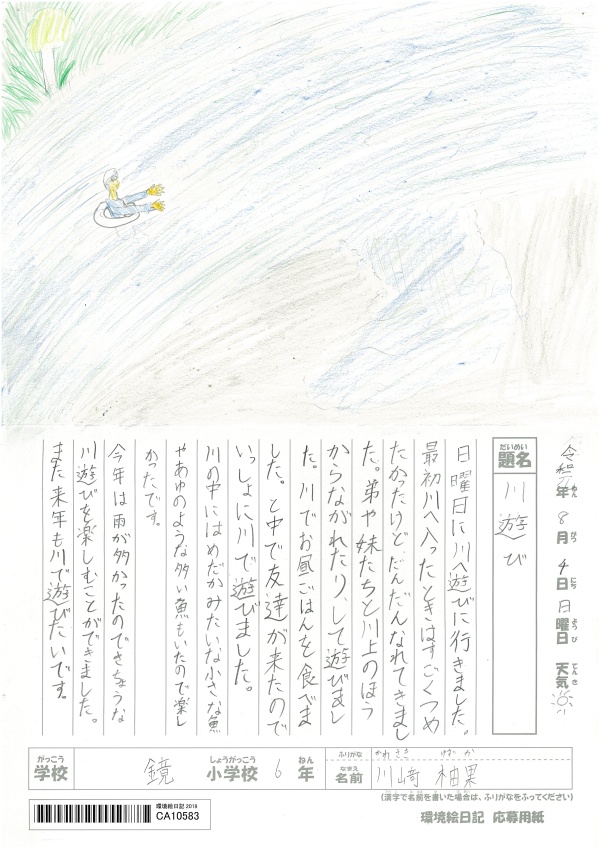 令和元年 8月 4日 日曜日 天気
ねん がつ にち ようび てんき
だいめい
題名
川遊び
日曜日に川へ遊びに行きました。
最初川へ入ったときはすごくつめ
たかったけど、だんだんなれてきまし
た。弟や妹たちと川上のほう
からながれたり、して遊びまし
た。川でお昼ごはんを食べま
した。と中で友達が来たので
いっしょに川で遊びました。
川の中にはめだかみたいな小さな魚
やあゆのような多い魚もいたので楽し
かったです。
今年は雨が多かったのできちょうな
川遊びを楽しむことができました。
また来年も川で遊びたいです。
がっこう しょうがっこう ねん
学校 鏡 小学校 6 年
ふりがな かわさき
なまえ
名前 川﨑 柚果
(漢字で名前を書いた場合は、ふりがなをふってください)
環境絵日記 2019
CA10583
環境絵日記 応募用紙